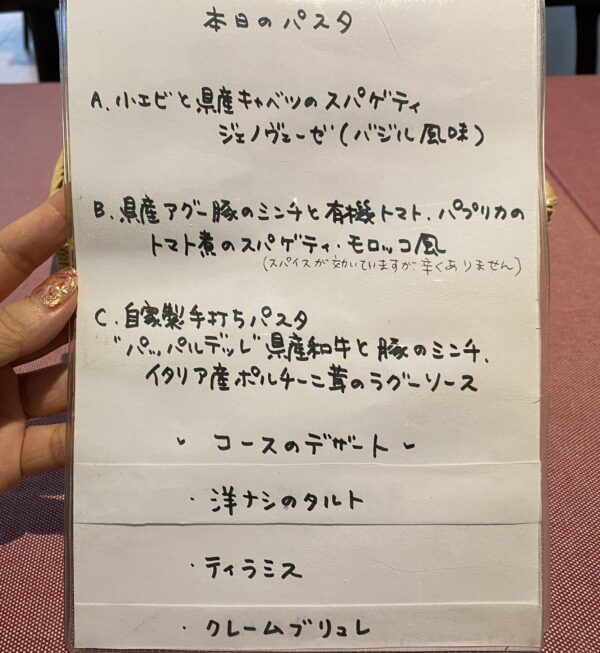 本日のパスタ
A、小エビと県産キャベツのスパゲティ
ジェノヴェーゼ(バジル風味)
B、県産アグー豚のミンチと有機トマト、パプリカの
トマト煮のスパゲティ・モロッコ風
(スパイスが効いていますが辛くありません)
C、自家製手打ちパスタ
"パッパルデッレ"県産和牛と豚のミンチ、
イタリア産ポルチーニ茸のラグーソース
コースのデザート
・洋ナシのタルト
・ティラミス
・クレームブリュレ